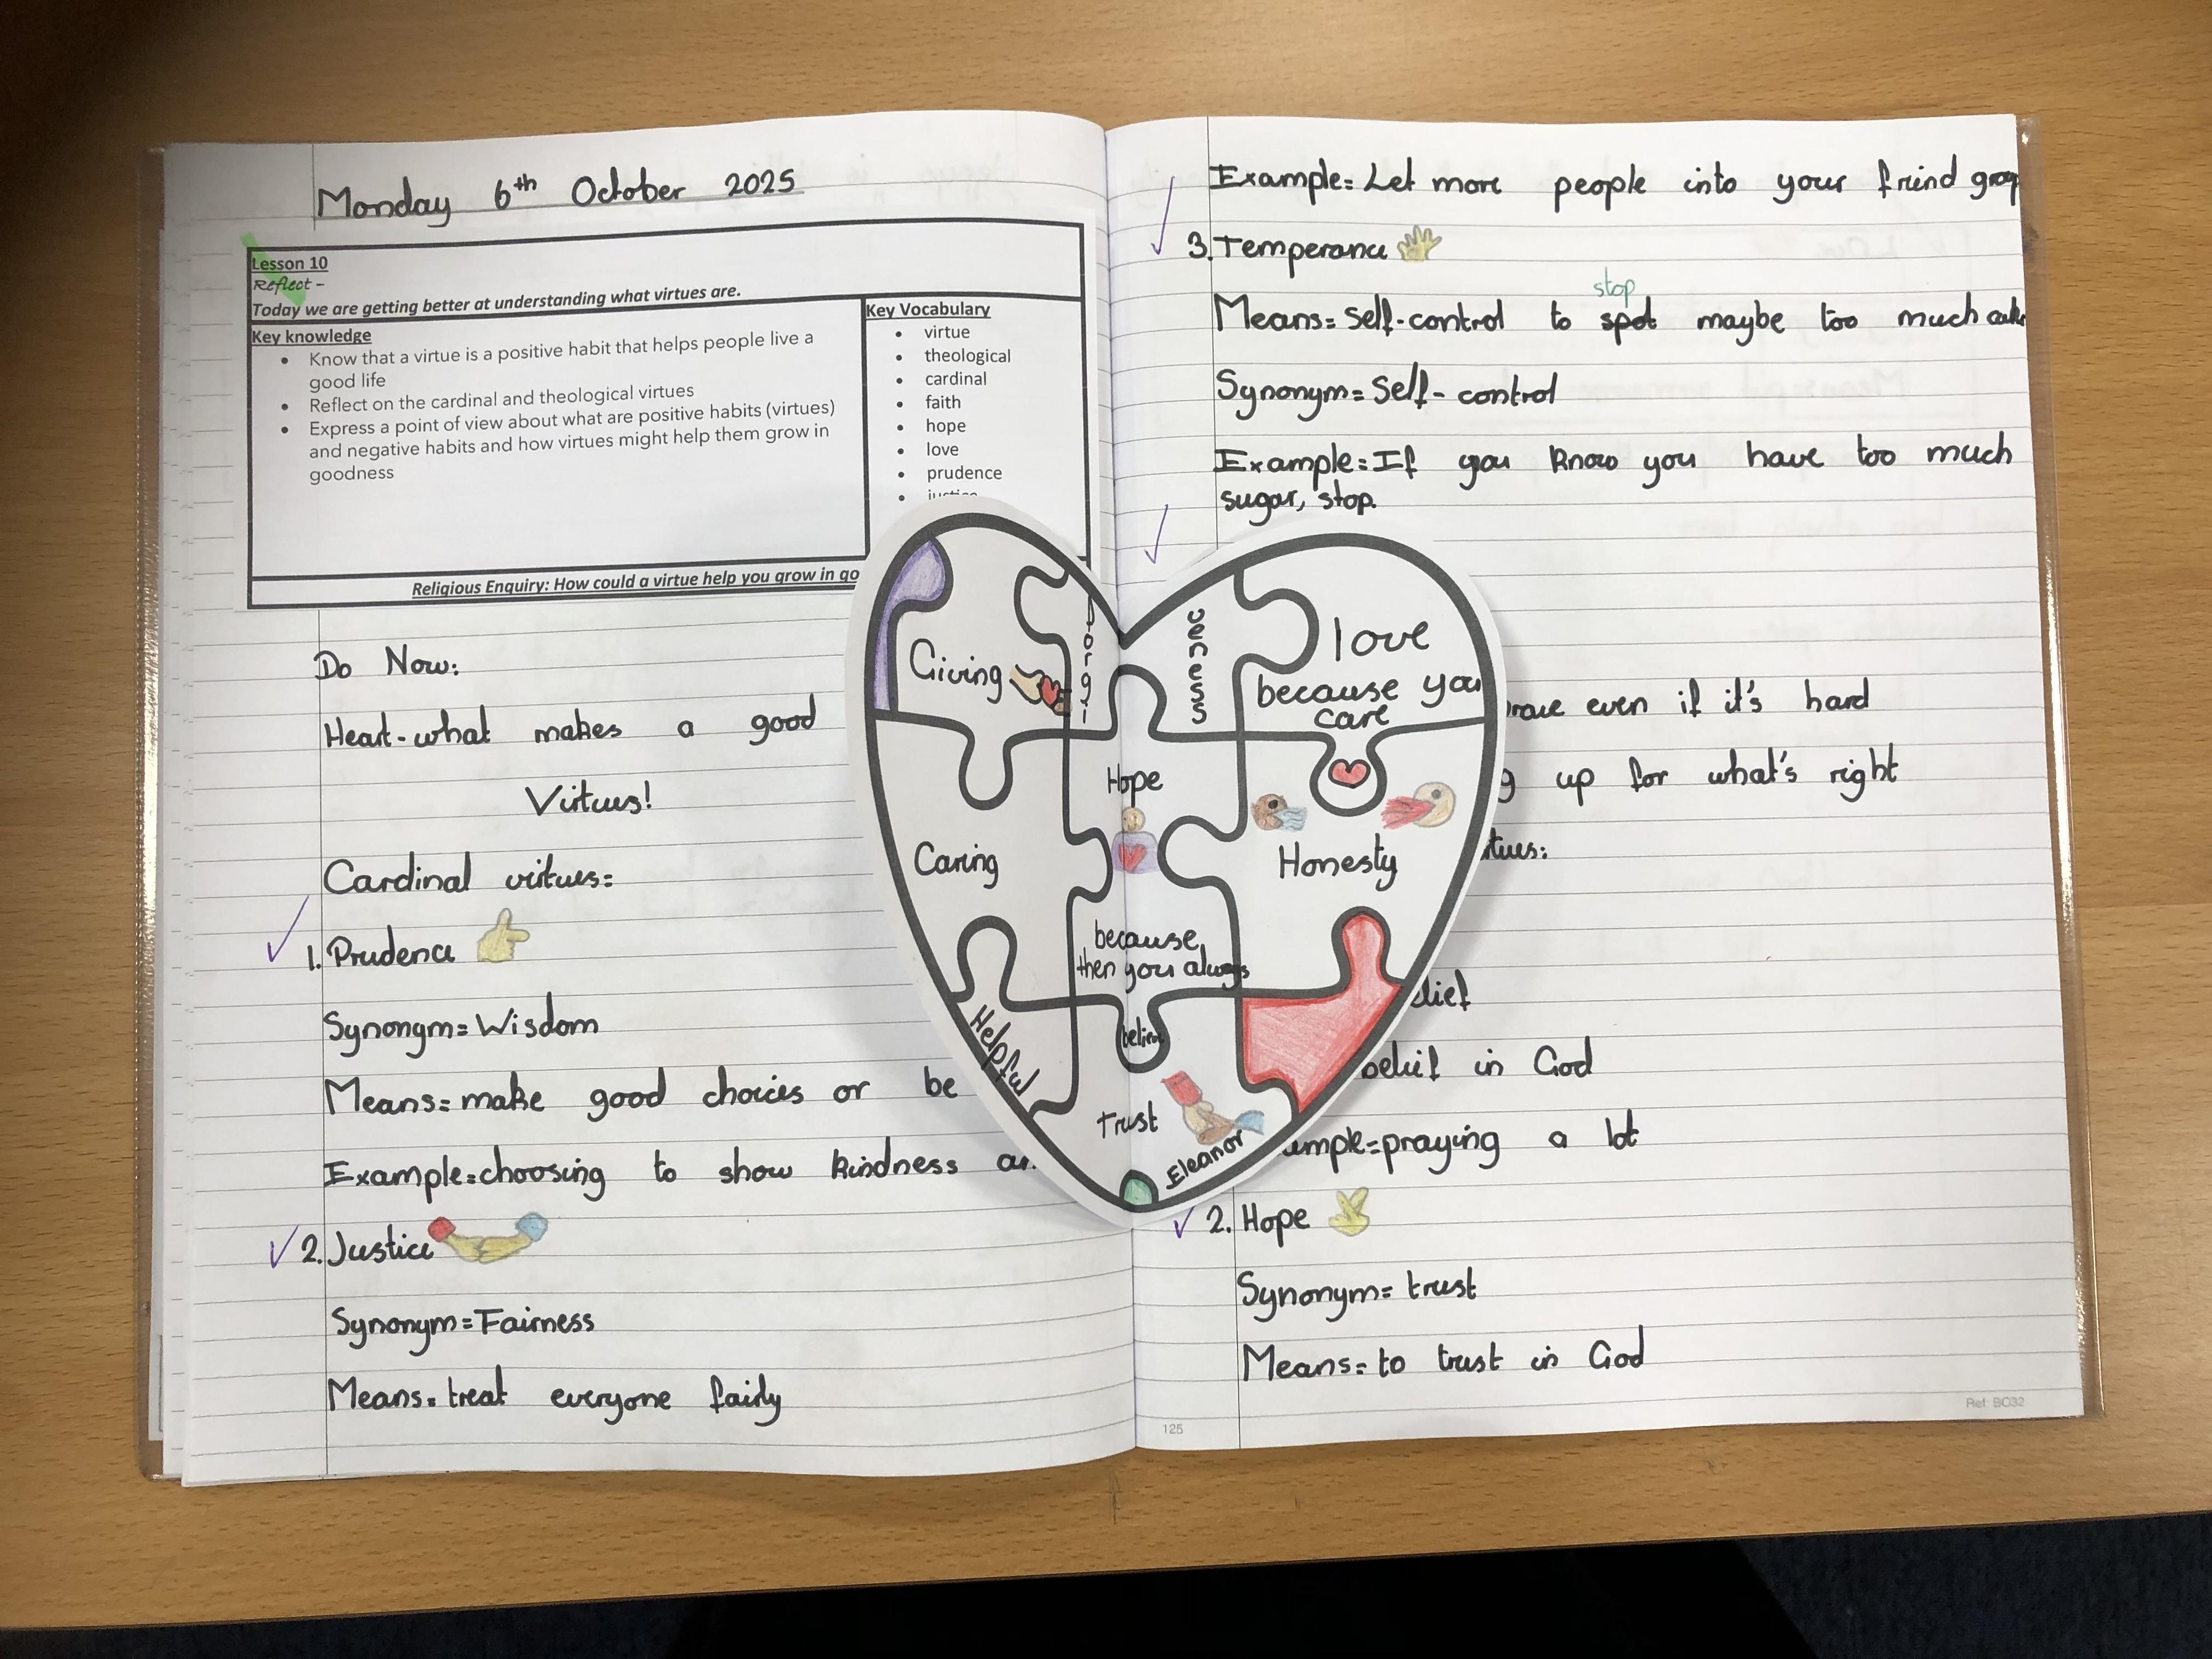 Monday 6th October 2025
Lesson 10
Reflect -
Today we are getting better at understanding what virtues are.
Key knowledge
• Know that a virtue is a positive habit that helps people live a
good life
• Reflect on the cardinal and theological virtues
• Express a point of view about what are positive habits (virtues)
and negative habits and how virtues might help them grow in
goodness
Key Vocabulary
• virtue
• theological
• cardinal
• faith
• hope
• love
• prudence
• justice
Religious Enquiry: How could a virtue help you grow in go
Do Now:
Heart-what makes a good
Virtues!
Cardinal virtues:
1. Prudence
Synonym=Wisdom
Means=make good choices or be
Example=choosing to show kindness
2. Justice
Synonym=Fairness
Means=treat everyone fairly
Giving
Forgi-
veness
love
because you
care
Hope
Caring
Honesty
because
then you always
believe
Helpful
Trust
Eleanor
Example=Let more people into your frind group
3. Temperance
stop
Means=Self-control to spot maybe too much cake
Synonym=Self-control
Example=If you know you have too much
sugar, stop.
brave even if it's hard
g up for what's right
tues:
elief
belief in God
ample=praying a lot
2. Hope
Synonym=trust
Means=to trust in God
125
Ref: BC32